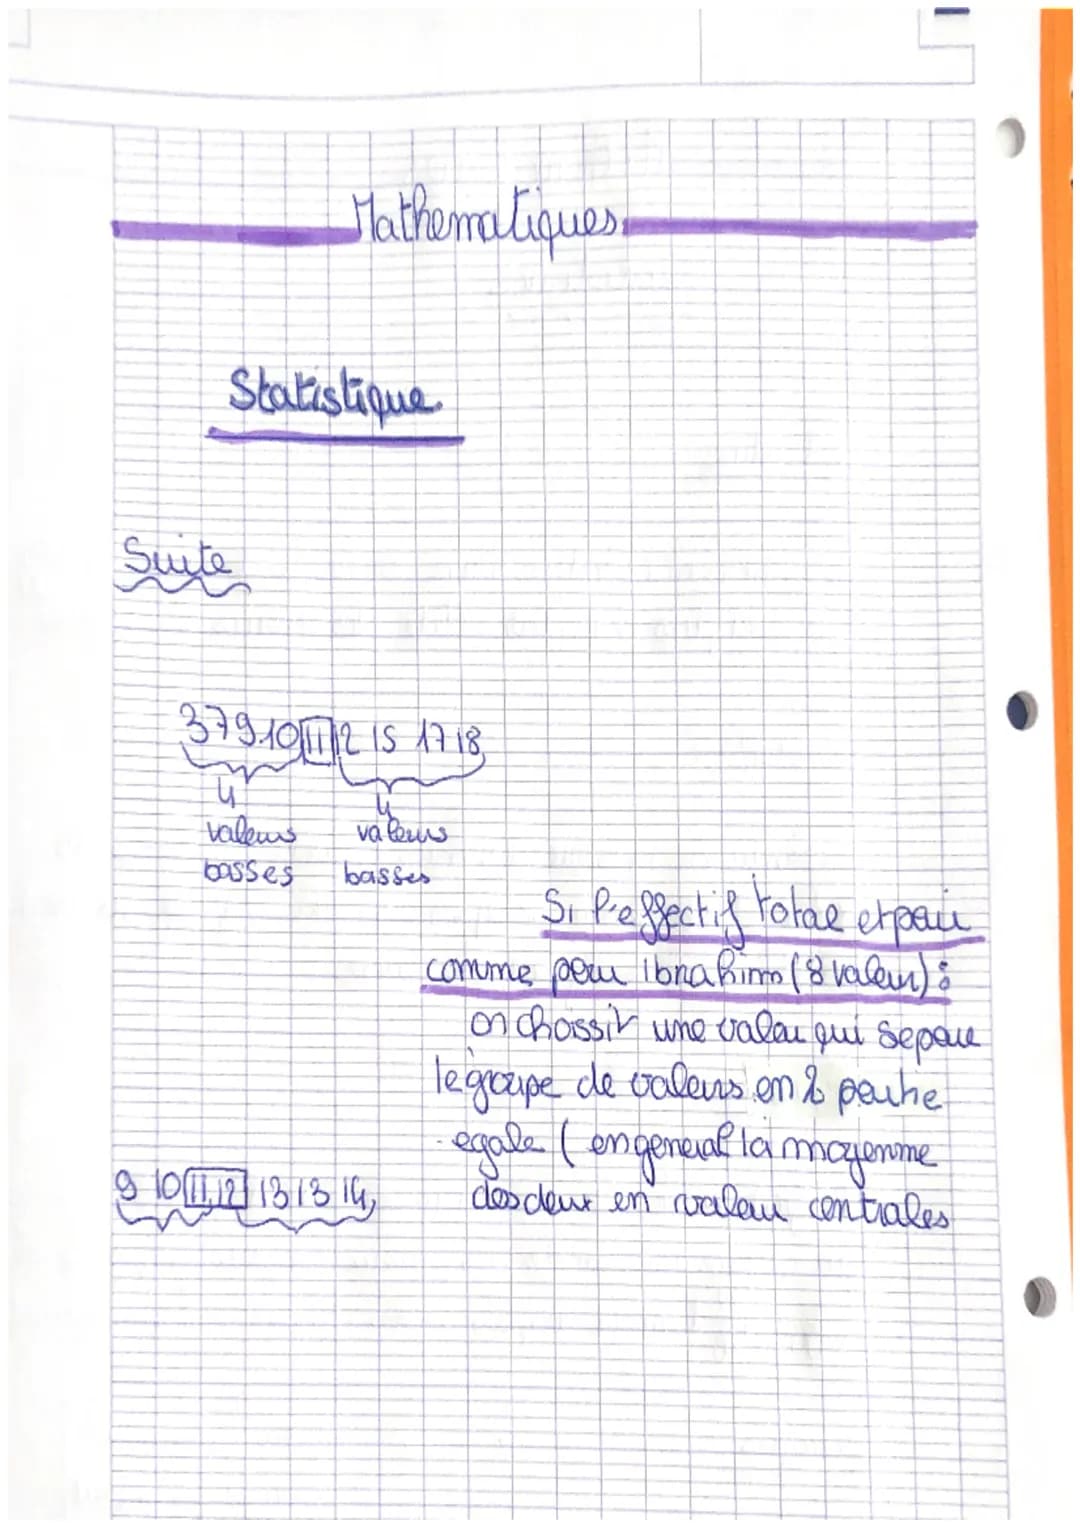 Mathematiques
Statistique
Suite
3 7 9 10 11 12 15 17 18
4 4
valeurs valeurs
basses basses
Si l'effectif total et pair
comme pour ibrahim (8 valeur) :
on choissit une valeur qui separe
le groupe de valeurs en 2 partie
egale ( en general la moyenne
des deux en valeur centrales
9 10 11,12 13 13 14,